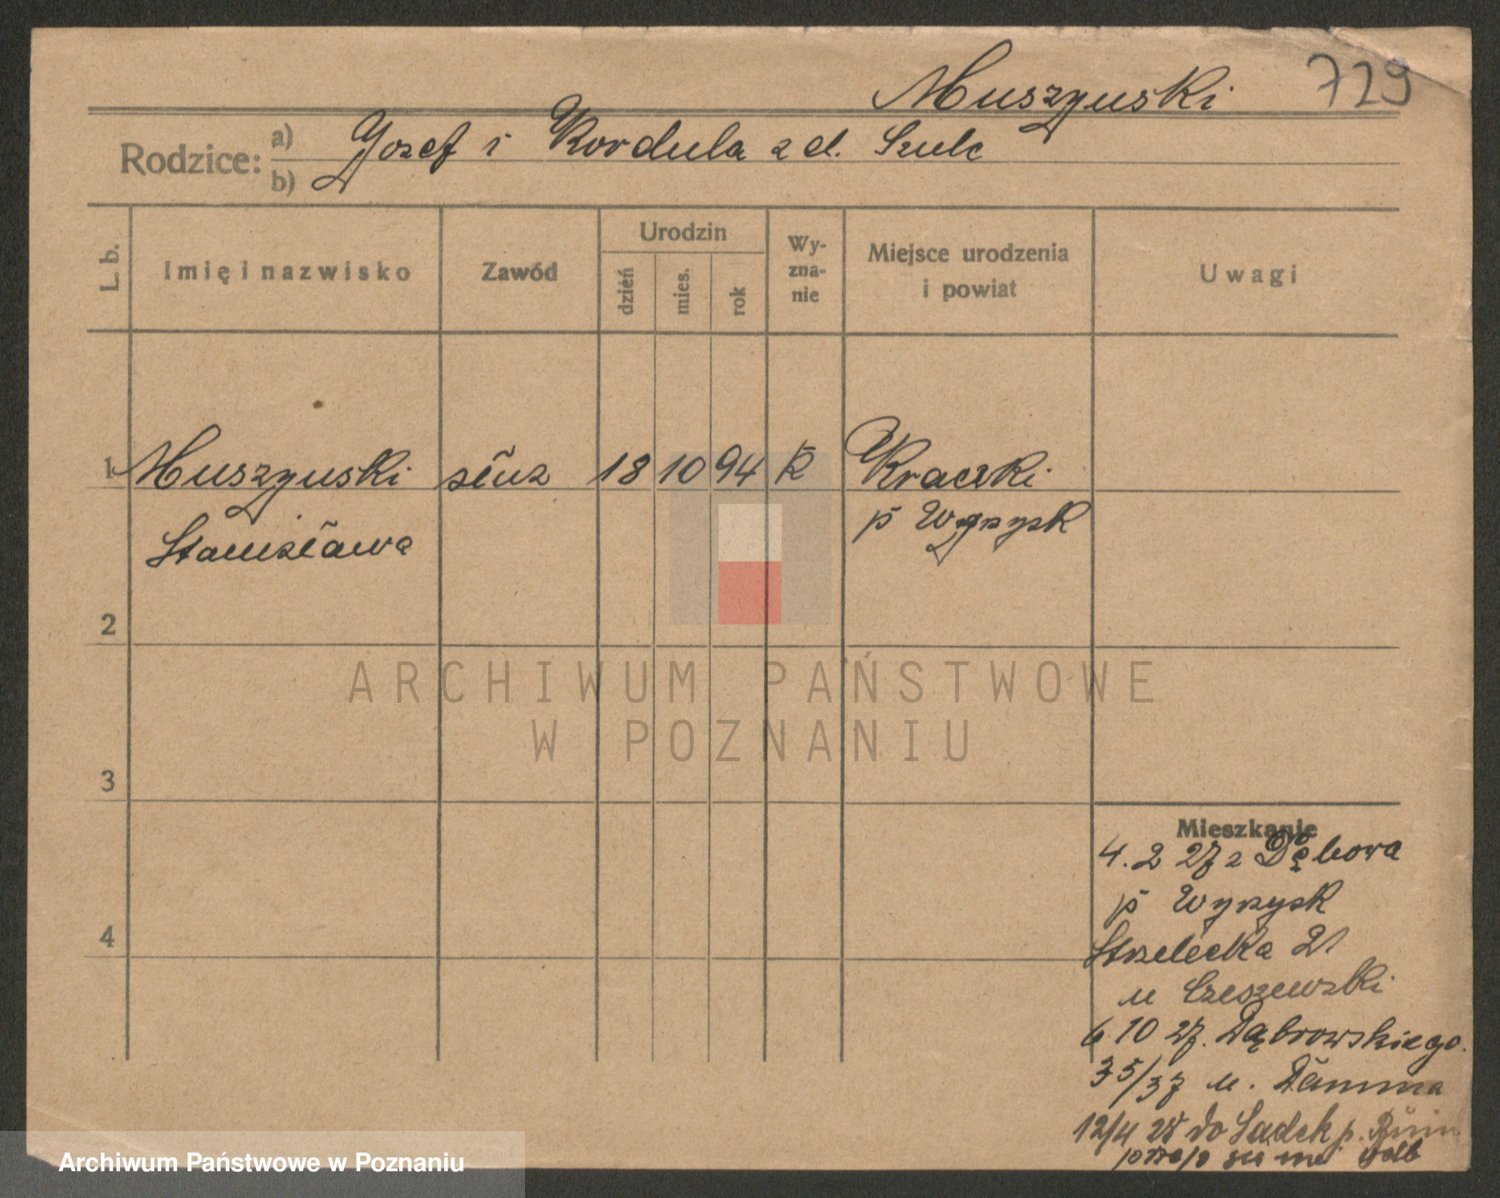 Muszyński 729
Rodzice: a) Józef i Kordula z d. Szulc
b)
L. b. Imię i nazwisko Zawód Urodzin Wy-zna-nie Miejsce urodzenia i powiat Uwagi
dzień mies. rok
1 Muszyński służ 18 10 94 k Kraczki
Stanisława p Wyrzysk
2
3
4
Mieszkanie
4. 2 27 z Dębowa
p Wyrzysk
Strzelecka 21
u Czeszewski
6 10 27. Dąbrowskiego
35/37 u.
12/4 28 do Sadek p.
ARCHIWUM PAŃSTWOWE
W POZNANIU
Archiwum Państwowe w Poznaniu